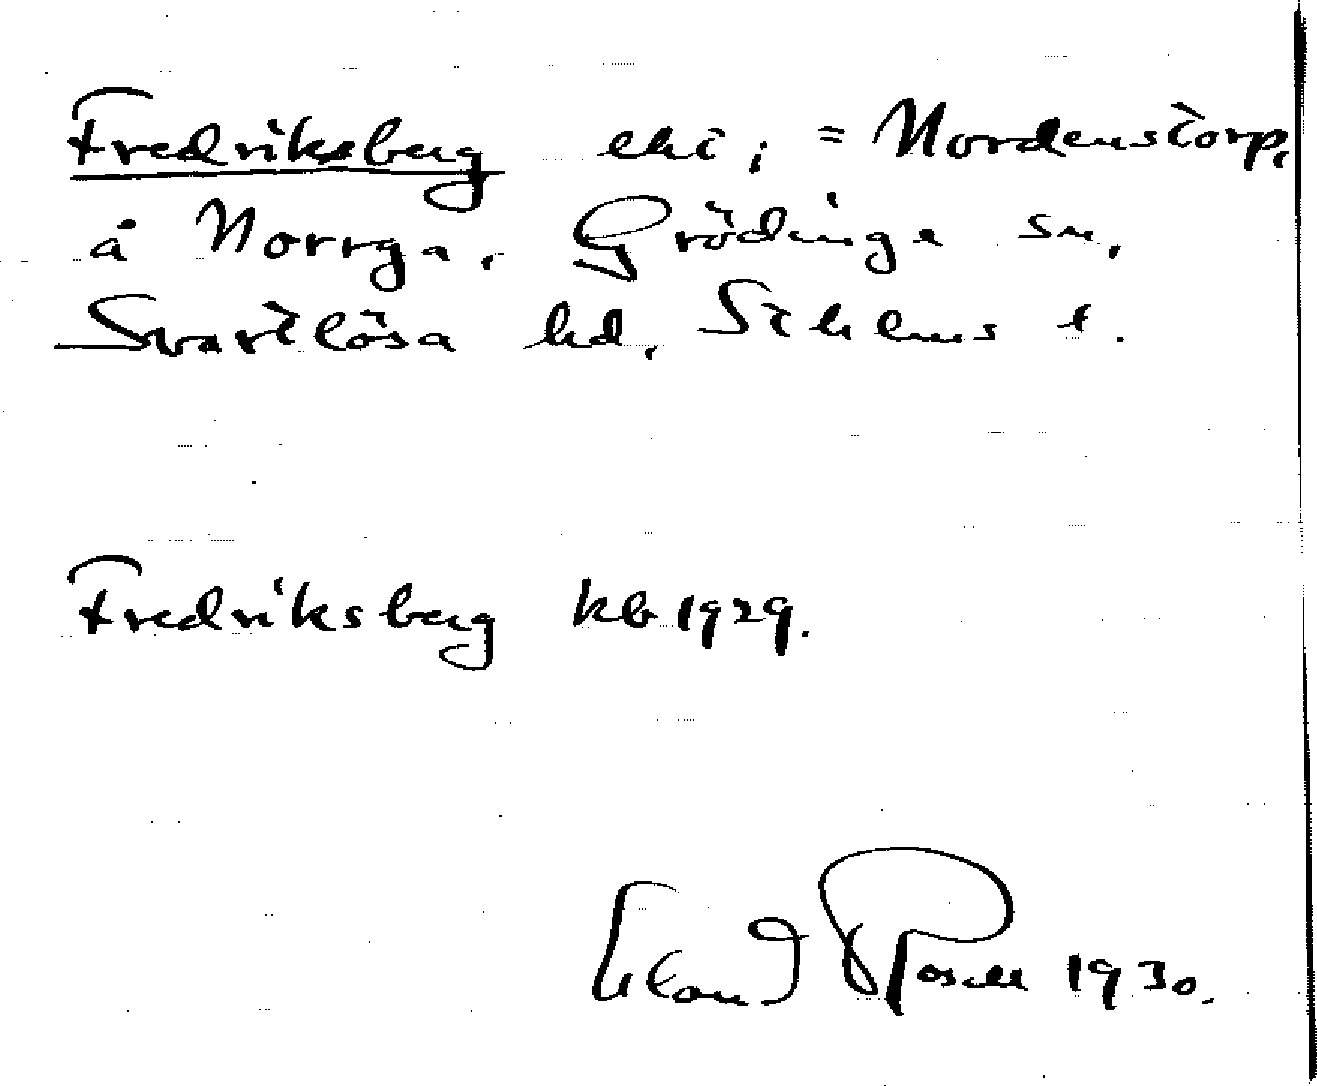 Fredriksberg eht; = Nordenstorp,
å Norrga, Grödinge sn,
Svartlösa hd, Sthlms l.
Fredriksberg kb 1929.
1930.